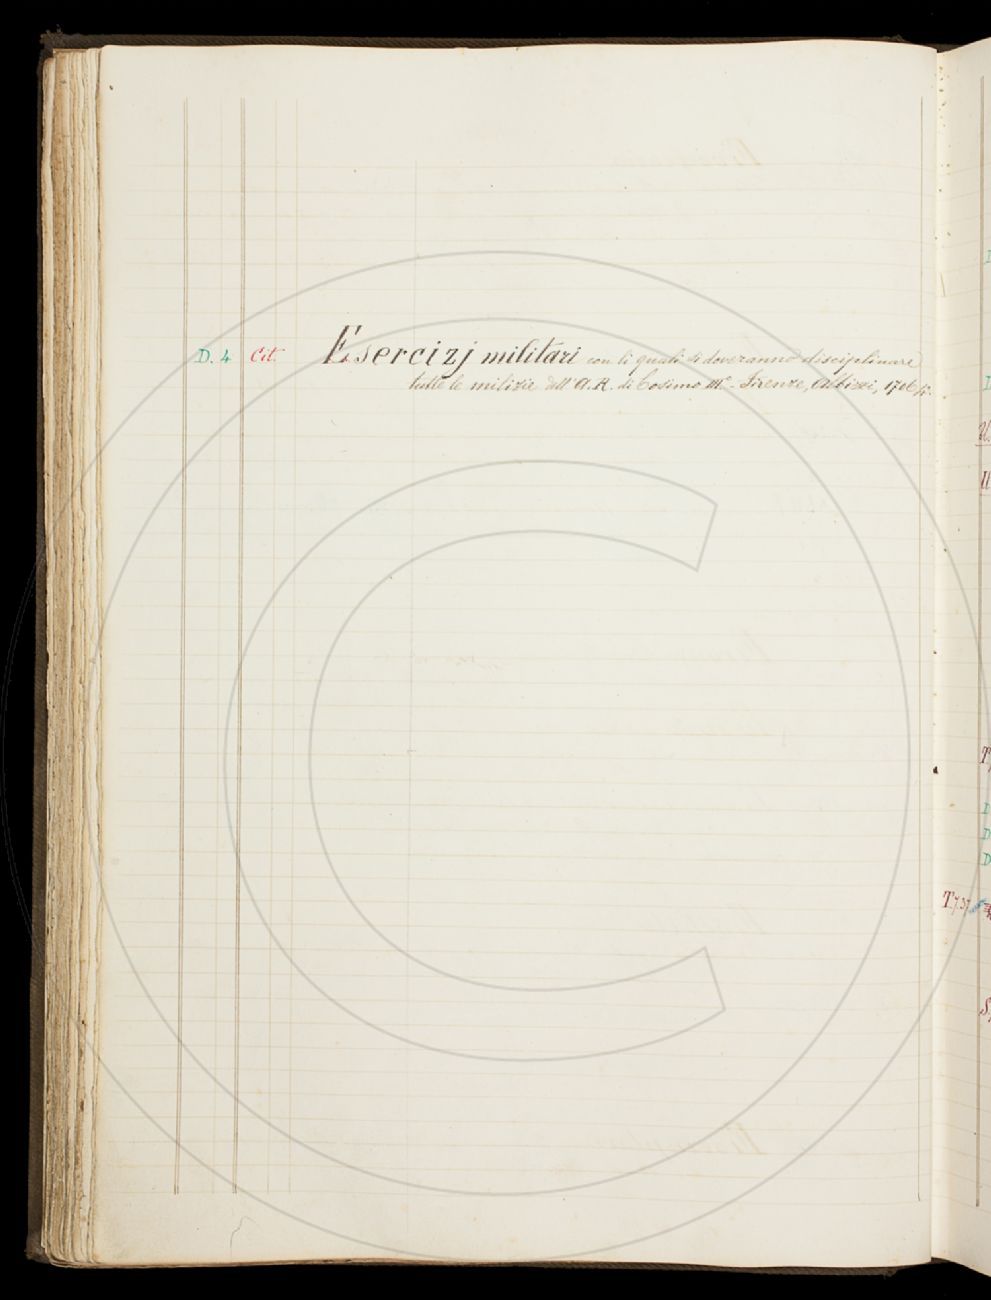 D. 4 Cit. Esercizj militari con li quali si doveranno disciplinare
tutte le milizie dell'A. R. di Cosimo III.º - Firenze, Albizzi, 1706, 4º.
T, 
D
D
D
T7.37